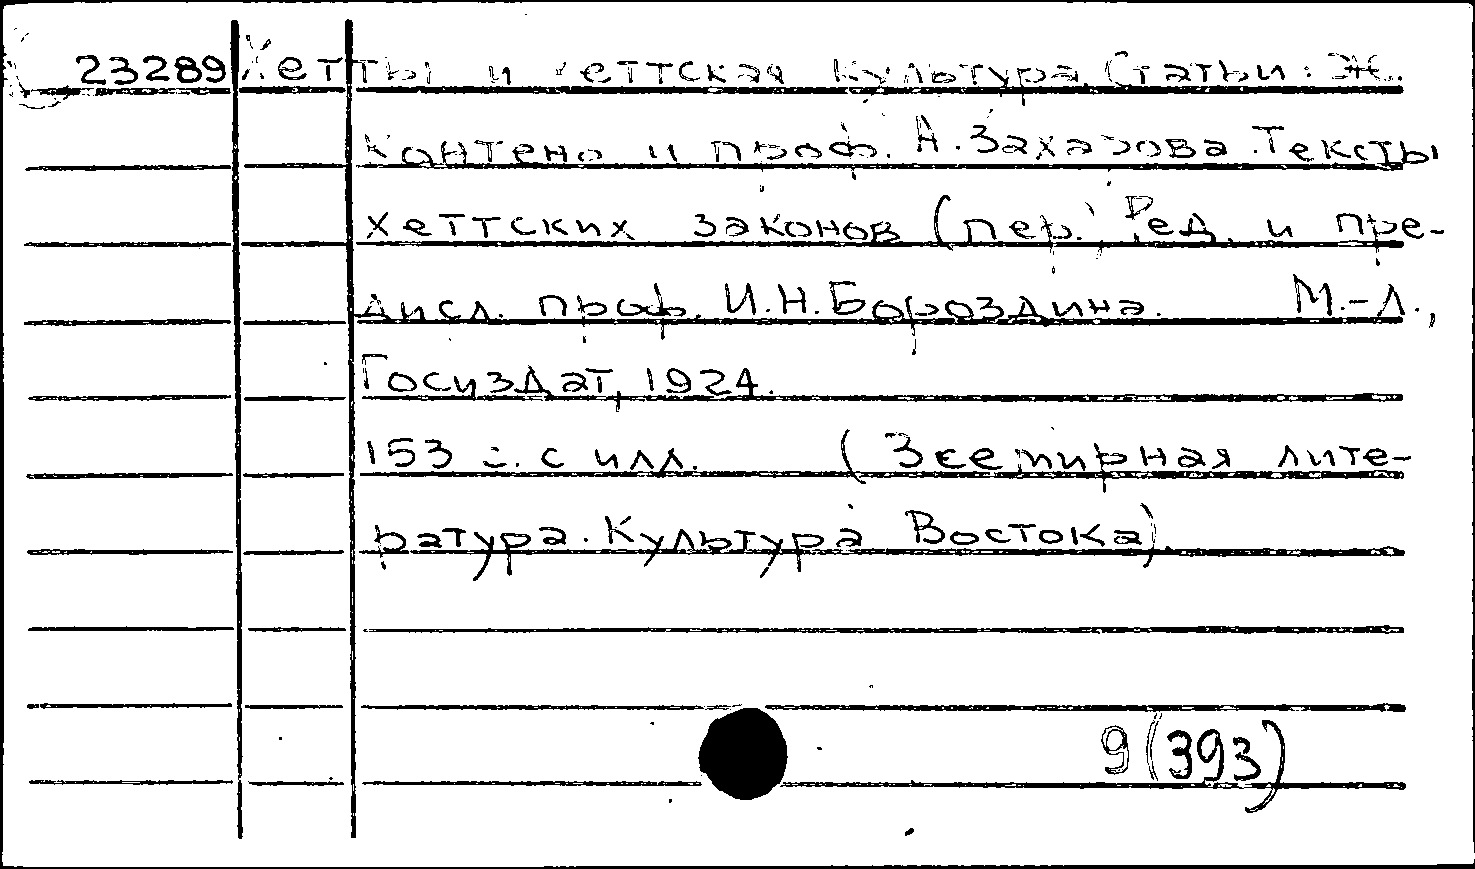 23289 Хетты и хеттская культура. Статьи: Ж.
Контено и проф. А. Захарова. Тексты
хеттских законов (пер.) Ред. и пре-
дисл. проф. И.Н. Бороздина. М.-Л.,
Госиздат, 1924.
153 с. с илл. (Всемирная лите-
ратура. Культура Востока).
9(393)